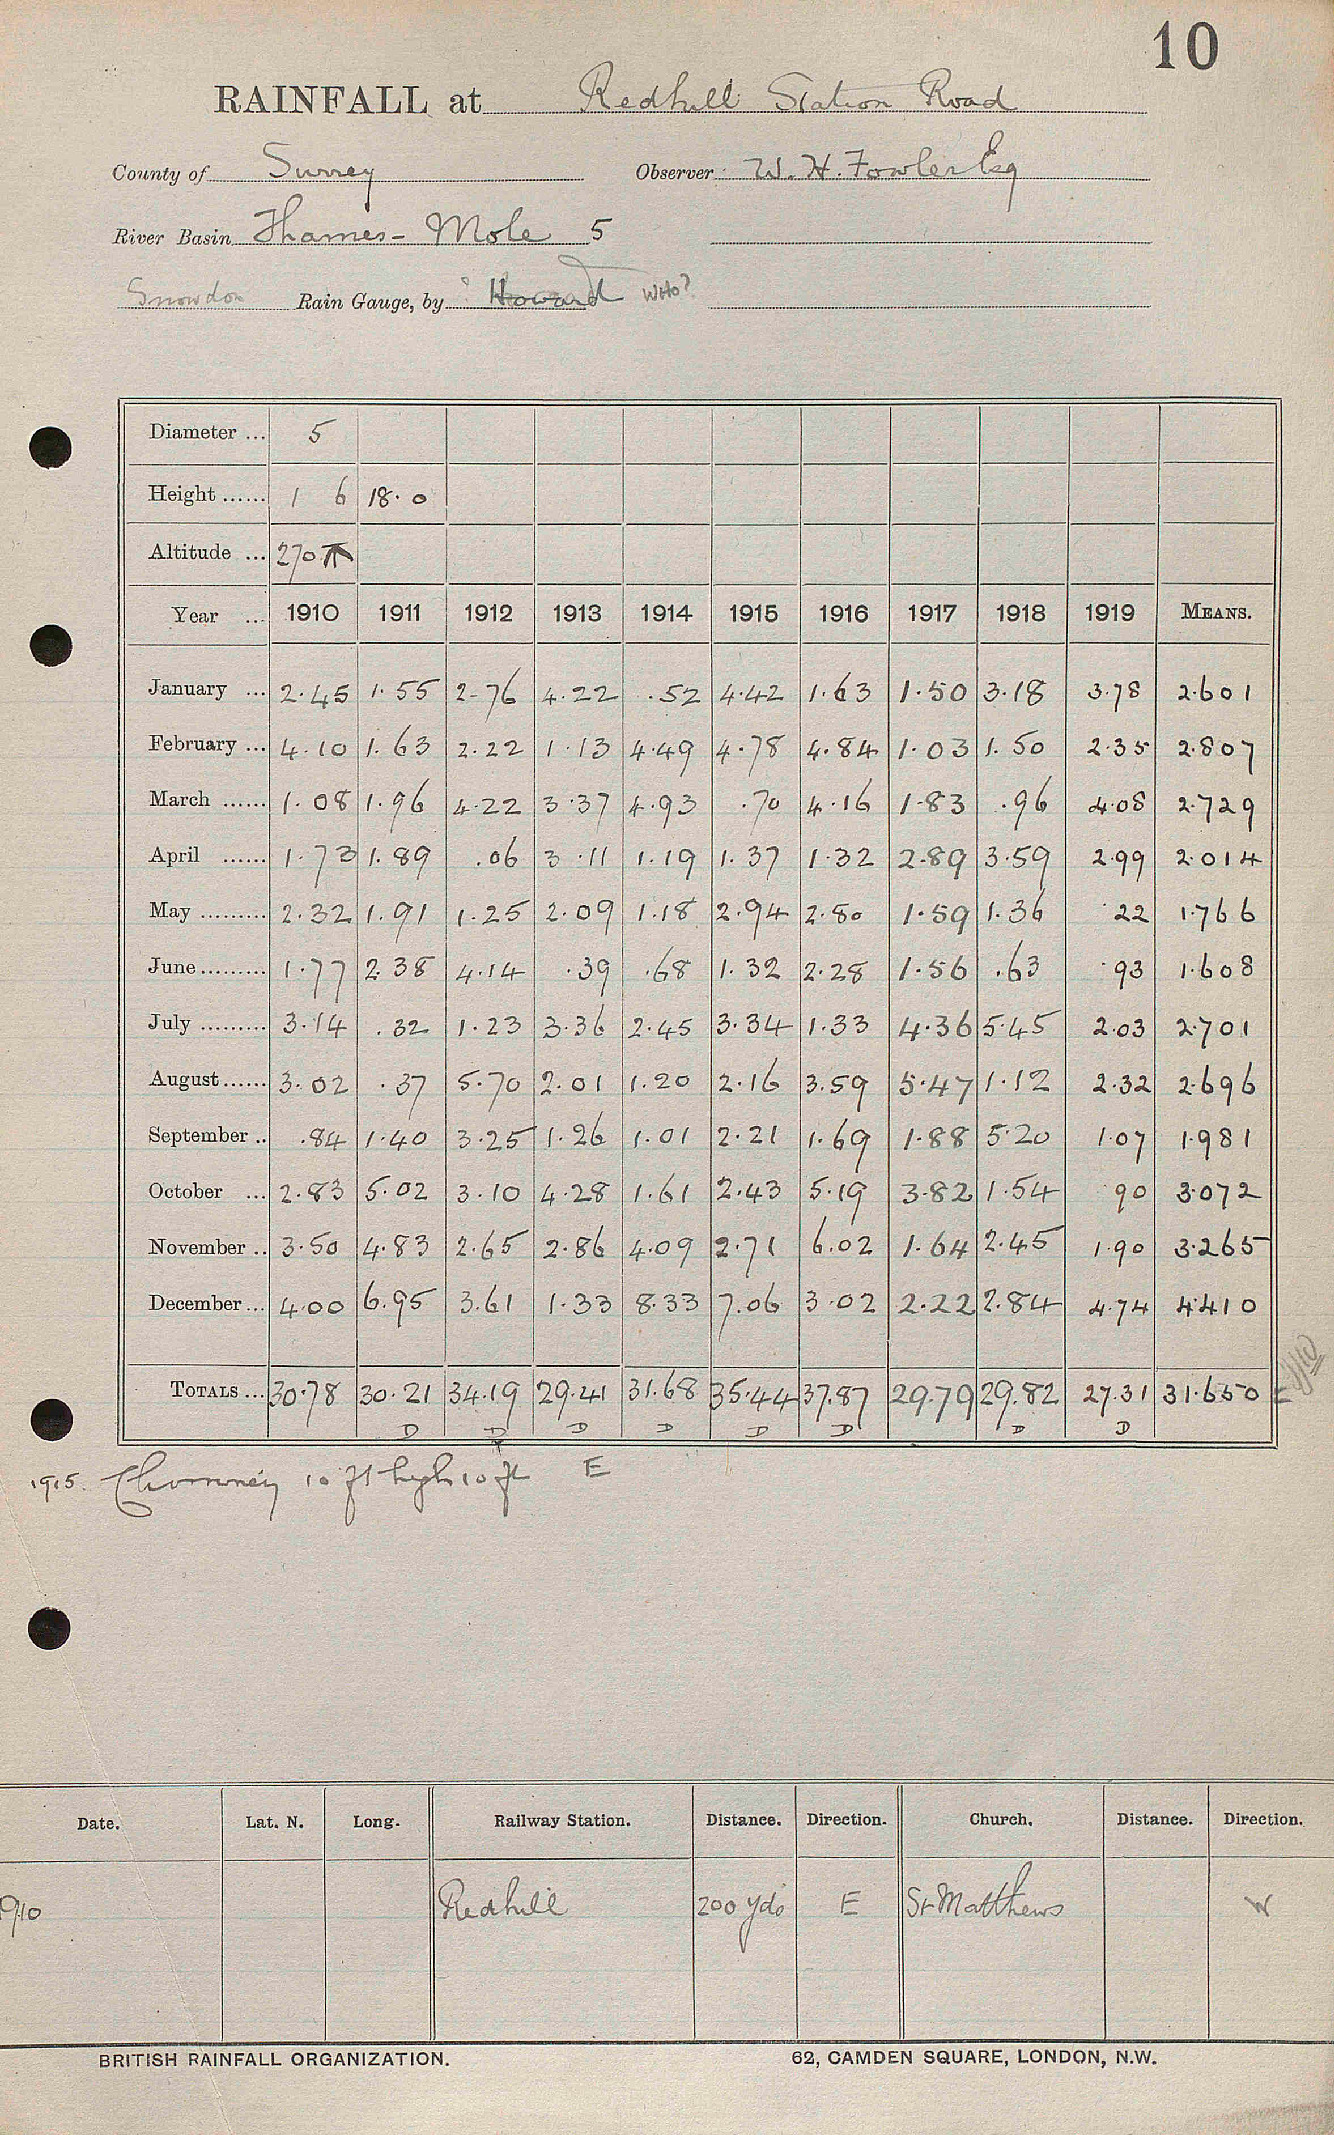 10
RAINFALL at Redhill Station Road
County of Surrey Observer W. H. Fowler Esq
River Basin Thames - Mole 5
Snowdon Rain Gauge, by Howard WHO?
Diameter ... 5
Height ...... 1 6 18. 0
Altitude ... 270
Year ... 1910 1911 1912 1913 1914 1915 1916 1917 1918 1919 MEANS.
January ... 2.45 1.55 2.76 4.22 .52 4.42 1.63 1.50 3.18 3.78 2.601
February ... 4.10 1.63 2.22 1.13 4.49 4.78 4.84 1.03 1.50 2.35 2.807
March ...... 1.08 1.96 4.22 3.37 4.93 .70 4.16 1.83 .96 4.08 2.729
April ...... 1.73 1.89 .06 3.11 1.19 1.37 1.32 2.89 3.59 2.99 2.014
May ......... 2.32 1.91 1.25 2.09 1.18 2.94 2.80 1.59 1.36 .22 1.766
June ......... 1.77 2.38 4.14 .39 .68 1.32 2.28 1.56 .63 .93 1.608
July ......... 3.14 .32 1.23 3.36 2.45 3.34 1.33 4.36 5.45 2.03 2.701
August ...... 3.02 .37 5.70 2.01 1.20 2.16 3.59 5.47 1.12 2.32 2.696
September .. .84 1.40 3.25 1.26 1.01 2.21 1.69 1.88 5.20 1.07 1.981
October ... 2.83 5.02 3.10 4.28 1.61 2.43 5.19 3.82 1.54 .90 3.072
November .. 3.50 4.83 2.65 2.86 4.09 2.71 6.02 1.64 2.45 1.90 3.265
December ... 4.00 6.95 3.61 1.33 8.33 7.06 3.02 2.22 2.84 4.74 4.410
TOTALS ... 30.78 30.21 34.19 29.41 31.68 35.44 37.87 29.79 29.82 27.31 31.650
D D D D D D D D
1915. Chimney 10 ft high 10 ft E
Date. Lat. N. Long. Railway Station. Distance. Direction. Church. Distance. Direction.
910 Redhill 200 yds E St Matthews W
BRITISH RAINFALL ORGANIZATION. 62, CAMDEN SQUARE, LONDON, N.W.